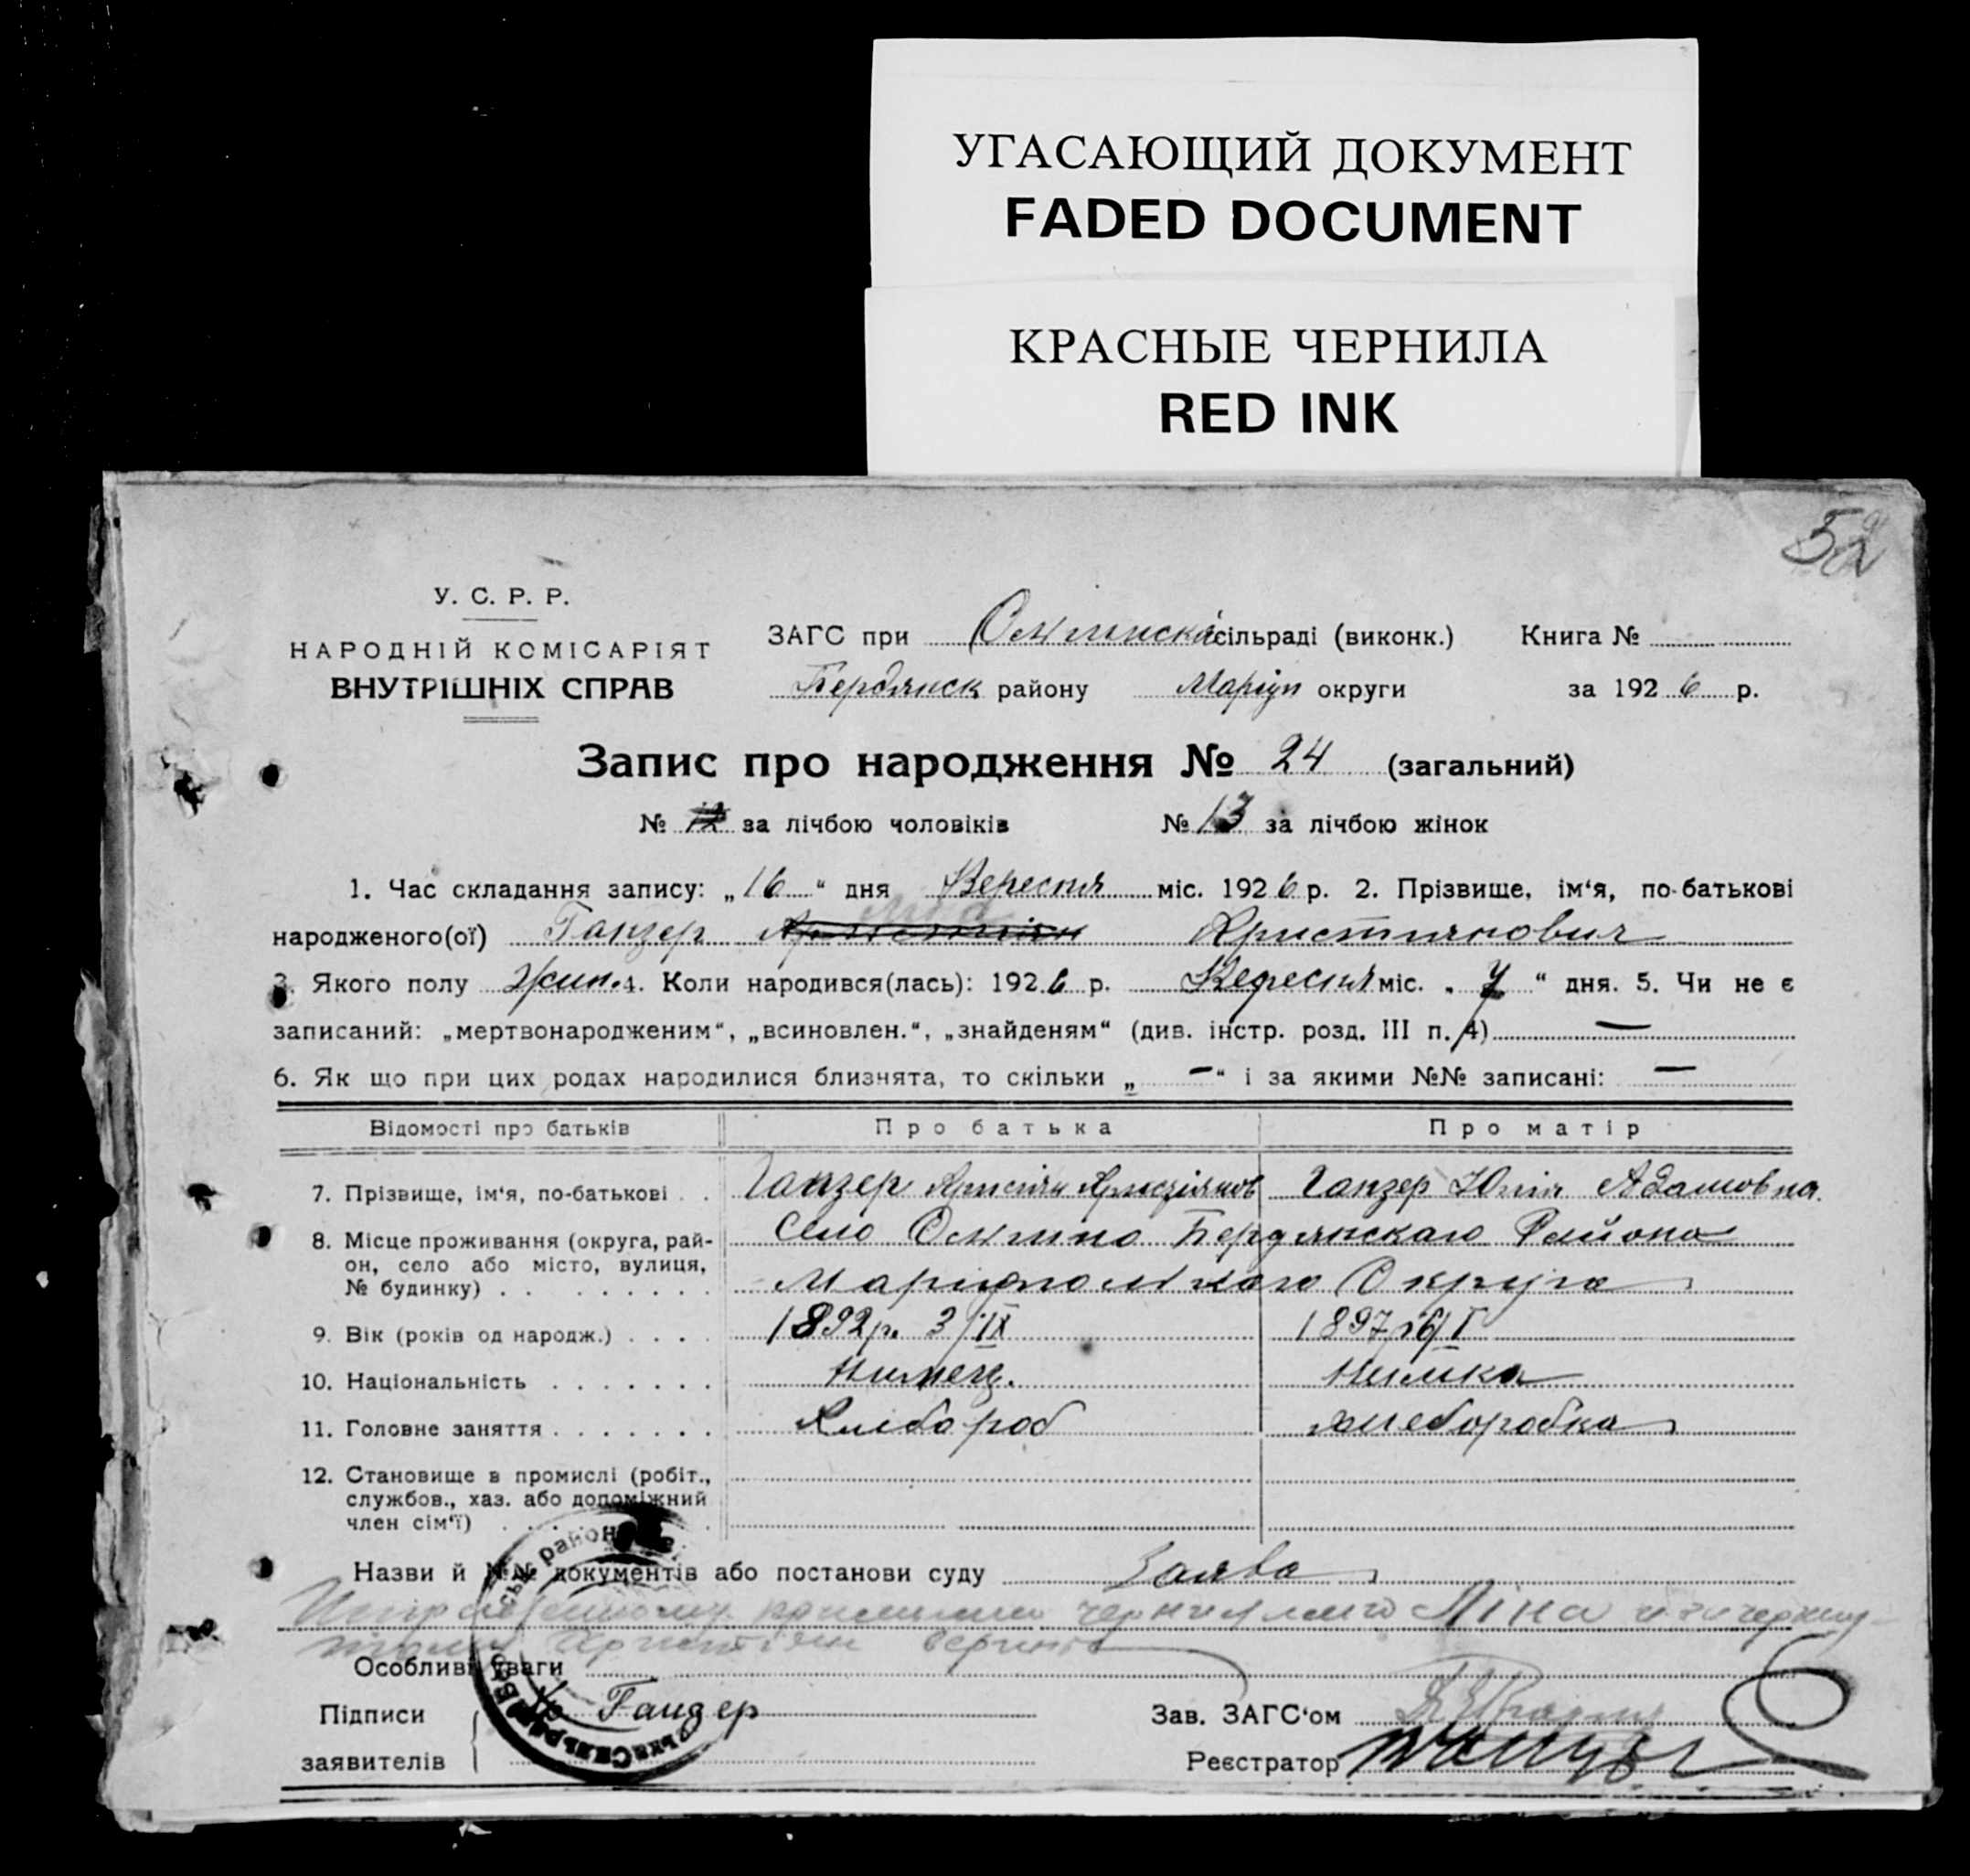 УГАСАЮЩИЙ ДОКУМЕНТ
FADED DOCUMENT
КРАСНЫЕ ЧЕРНИЛА
RED INK
52
У. С. Р. Р.
НАРОДНІЙ КОМІСАРІЯТ
ВНУТРІШНІХ СПРАВ
ЗАГС при сільраді (виконк.) Книга №
Бердянск району Маріуп округи за 1926 р.
Запис про народження № 24 (загальний)
№ за лічбою чоловіків № 13 за лічбою жінок
1. Час складання запису: „16“ дня Вересня міс. 1926 р. 2. Прізвище, ім‘я, по-батькові
народженого(ої) Ганзер Міна Христянович
3. Якого полу Жін. 4. Коли народився(лась): 1926 р. Вересня міс. „7“ дня. 5. Чи не є
записаний: „мертвонародженим“, „всиновлен.“, „знайденям“ (див. інстр. розд. III п. 4) —
6. Як що при цих родах народилися близнята, то скільки „—“ і за якими №№ записані: —
Відомості про батьків Про батька Про матір
7. Прізвище, ім‘я, по-батькові . . Ганзер Христян Христіянов Ганзер Юлія Адамовна
8. Місце проживання (округа, рай- Село Бердянскаго Района
он, село або місто, вулиця,
№ будинку) . . . . . . . . . Округа
9. Вік (років од народж.) . . . . 1892 р. 3/IX 1897 р 6/I
10. Національність . . . . . . . Нимец. Нимка
11. Головне заняття . . . . . . . Хлібороб хлеборобка
12. Становище в промислі (робіт.,
службов., хаз. або допоміжний
член сім‘ї)
Назви й №№ документів або постанови суду Заява
Міна
Особливі уваги
Підписи Ганзер Зав. ЗАГС‘ом
заявителів Реєстратор